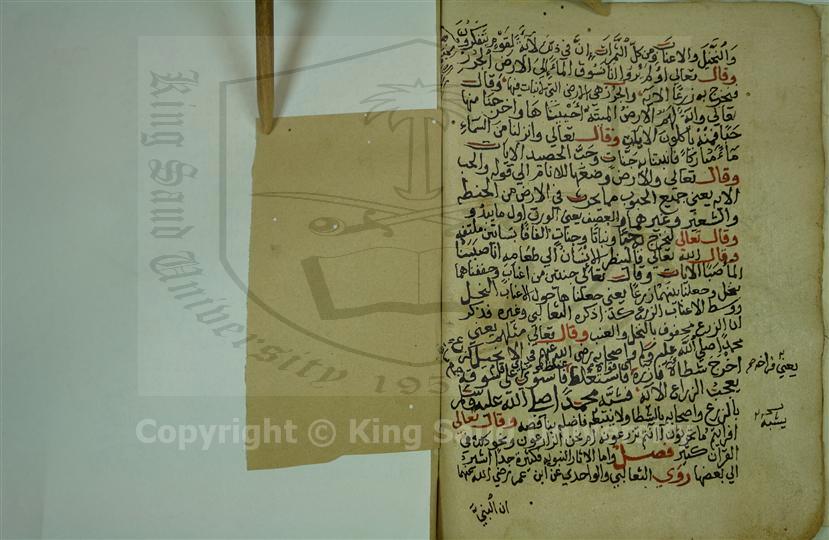 والنخيل والاعناب ومن كل الثمرات ان في ذلك لاية لقوم يتفكرون
وقال تعالى اولم يروا انا نسوق الماء الى الارض الجرز
فنخرج به زرعا الاية والجرز هي الارض التي لانبات فيها وقال
تعالى واية لهم الارض الميتة احييناها واخرجنا منها
حبا فمنه ياكلون الايات وقال تعالى وانزلنا من السماء
ماء مباركا فانبتنا به جنات وحب الحصيد الايات
وقال تعالى والارض وضعها للانام الى قوله والحب
الاية يعني جميع الحبوب مما يحرث في الارض من الحنطه
والشعير وغيرهما والعصف يعني الورق اول ما يبدو
وقال تعالى لنخرج به حبا ونباتا وجنات الفافا بساتين ملتفه
وقال الله تعالى فلينظر الانسان الى طعامه انا صببنا
الماء صبا الايات وقال تعالى جنتين من اعناب وحففناهما
بنخل وجعلنا بينهما زرعا يعني جعلنا حول الاعناب النخل
ووسط الاعناب الزرع كذا ذكره الثعالبي وغيره فذكر
ان الزرع محفوف بالنخل والعنب وقال تعالى مثلهم يعني
محمد صلى الله عليه وسلم واصحابه رضي الله عنهم في الانجيل كزرع
اخرج شطاه فازره فاستغلظ فاستوى على سوقه
يعجب الزراع الاية فشبه محمدا صلى الله عليه وسلم
بالزرع واصحابه بالشطا
وقال تعالى
افرايتم ما تحرثون اانتم تزرعونه ام نحن الزارعون ونحو ذلك في
القران كثير فصل واما الاثار النبويه فكثيرة جدا
الى بعضها روى الثعالبي والواحدي عن ابن عمر رضي الله عنهما
ان النبي
يعني فراخه
يشبه
King Saud University
1957
Copyright © King Saud University